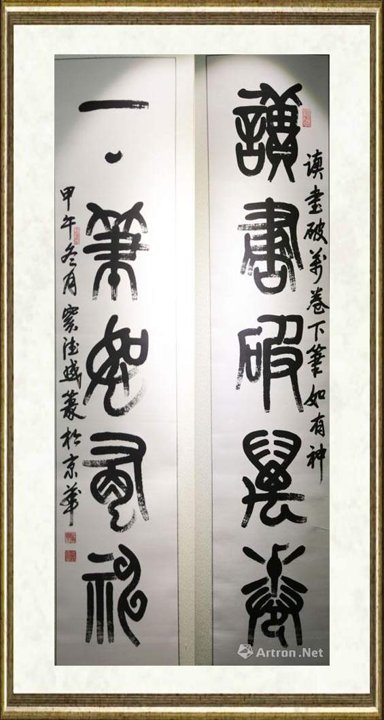 讀書破萬卷下筆如有神
讀書破萬卷
下筆如有神
甲午冬月篆於京華
Artron.Net